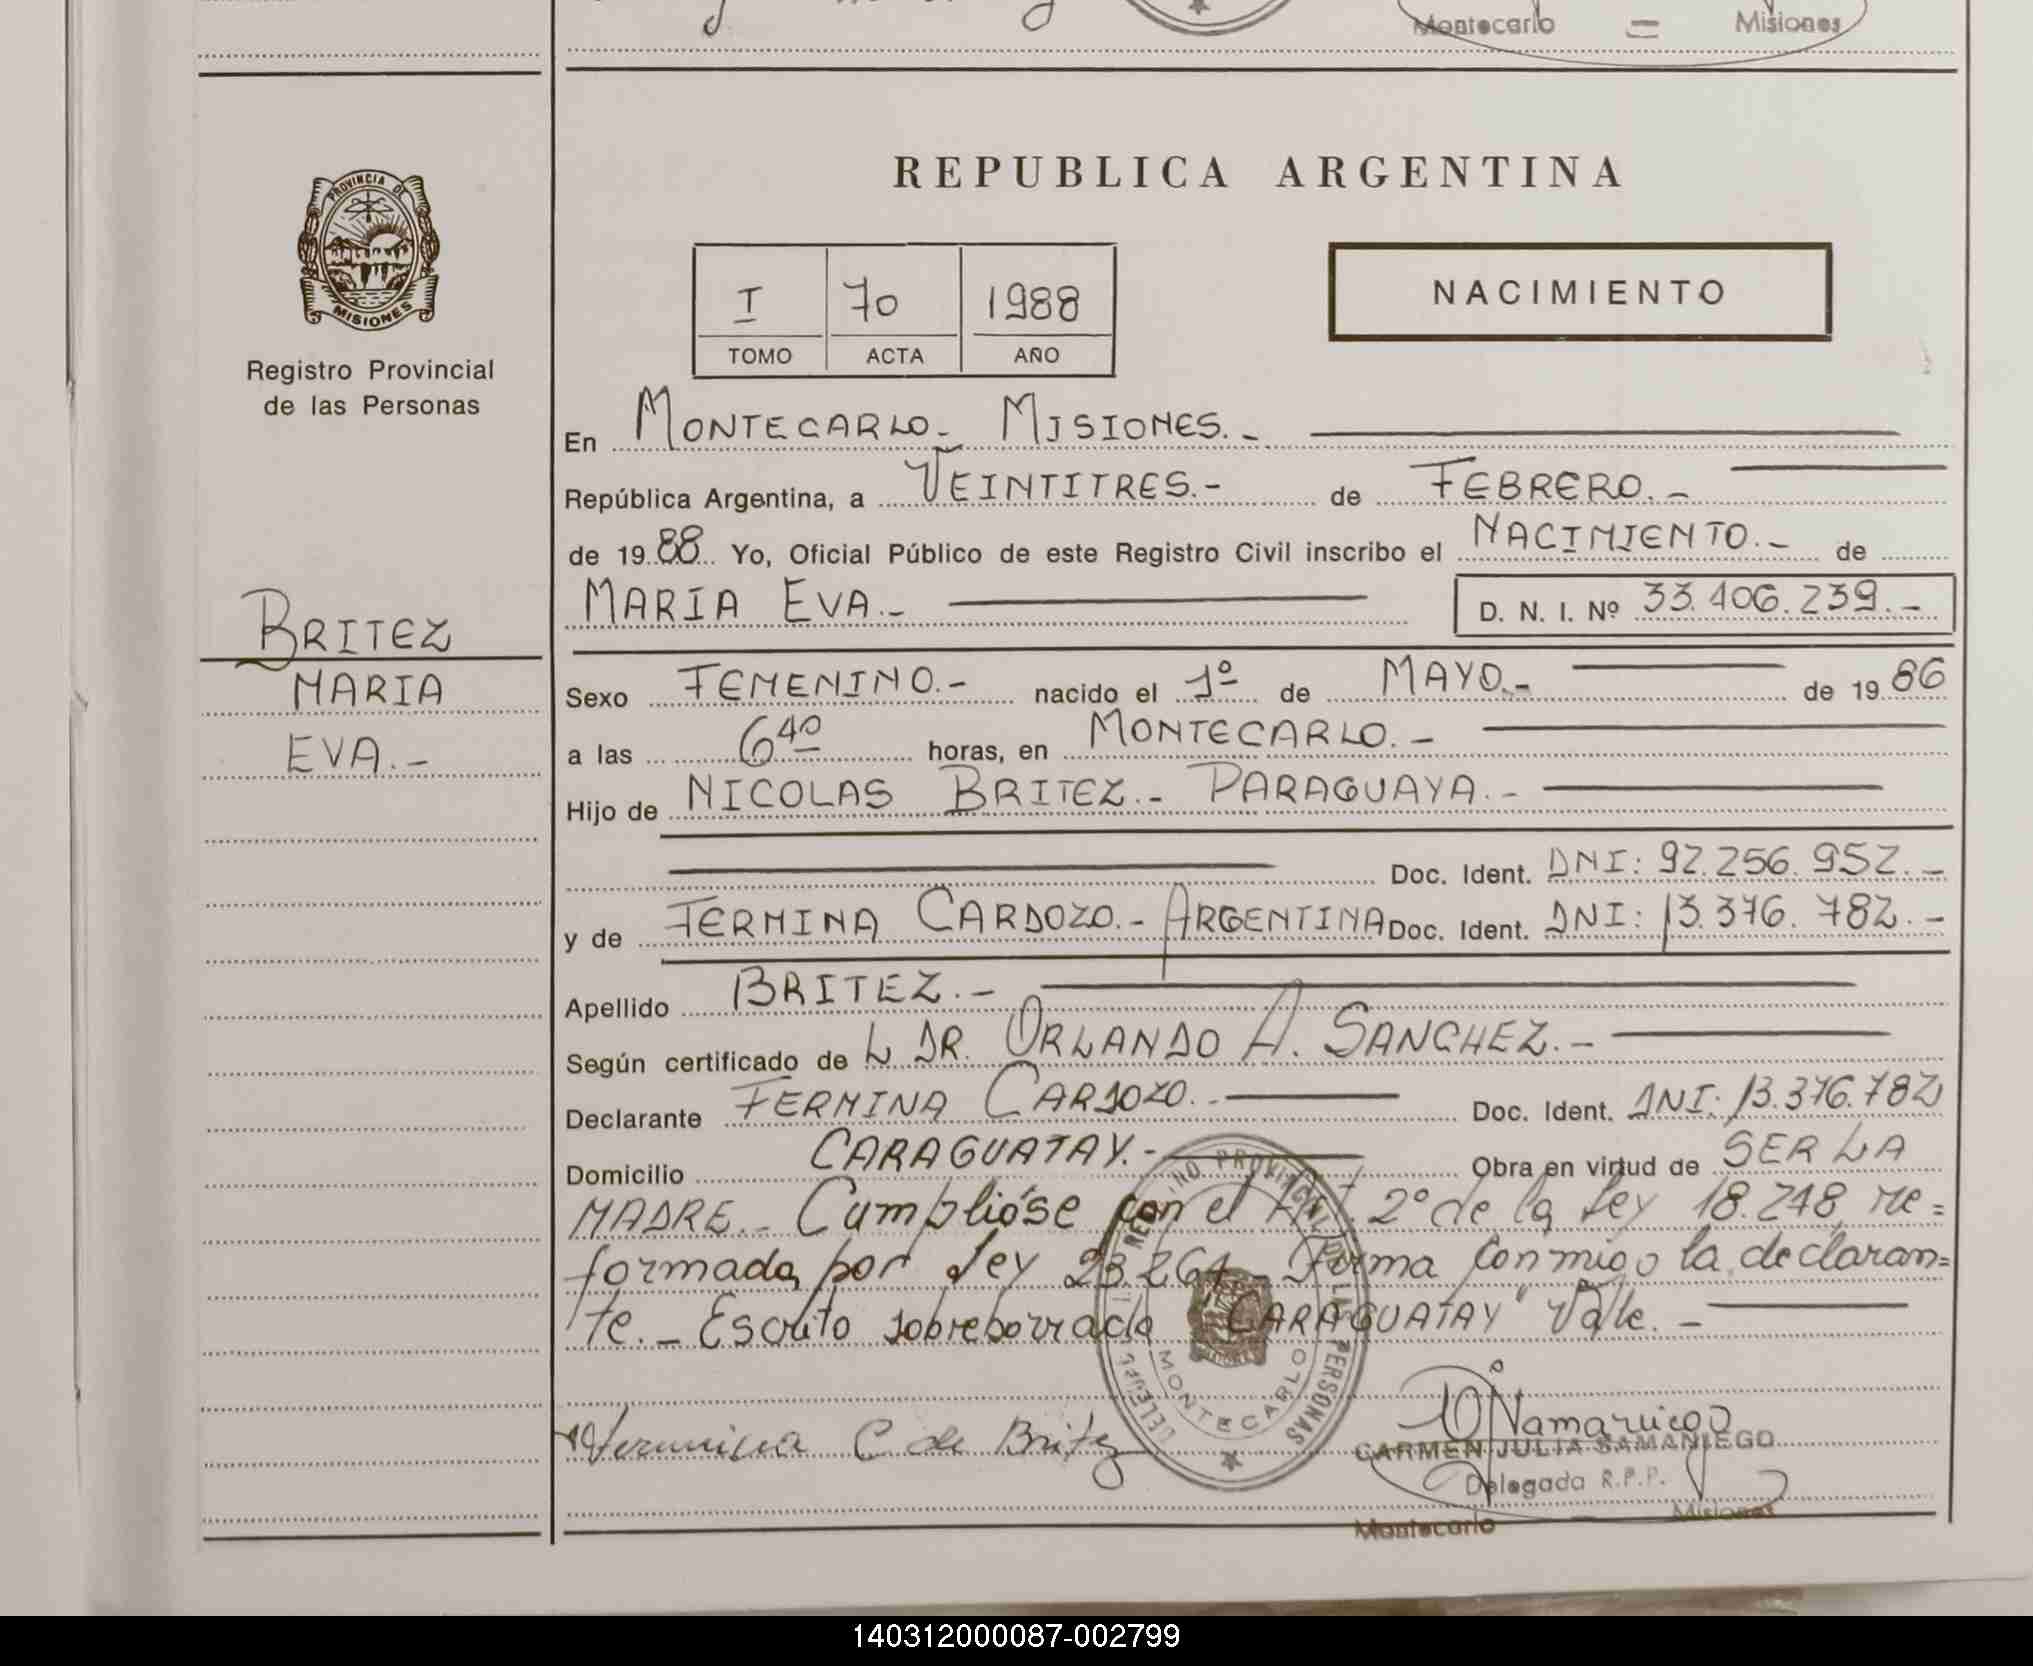 Montecarlo = Misiones
REPUBLICA ARGENTINA
PROVINCIA DE
MISIONES
Registro Provincial
de las Personas
I 70 1988
TOMO ACTA AÑO
NACIMIENTO
En MONTECARLO.- MISIONES.-
República Argentina, a VEINTITRES.- de FEBRERO.-
de 19 88 Yo, Oficial Público de este Registro Civil inscribo el NACIMIENTO.- de
MARIA EVA.- D. N. I. Nº 33.406.239.-
BRITEZ
MARIA
EVA.-
Sexo FEMENINO.- nacido el 1º de MAYO.- de 19 86
a las 6 40 horas, en MONTECARLO.-
Hijo de NICOLAS BRITEZ.- PARAGUAYA.-
Doc. Ident. DNI: 92.256.952.-
y de FERMINA CARDOZO.- ARGENTINA Doc. Ident. DNI: 13.376.782.-
Apellido BRITEZ.-
Según certificado de L DR. ORLANDO A. SANCHEZ.-
Declarante FERMINA CARDOZO.- Doc. Ident. DNI: 13.376.782
Domicilio CARAGUATAY.- Obra en virtud de SER LA
MADRE.- Cumplióse con el Art 2º de la Ley 18.248, re=
formada por Ley 23.264.- Firma conmigo la declaran=
te.- Escrito sobreborrado "CARAGUATAY" Vale.-
PROVINCIAL DE LAS PERSONAS
MONTECARLO
Fermina C de Britez
CARMEN JULIA SAMANIEGO
Delegada R.P.P.
Montecarlo - Misiones
140312000087-002799